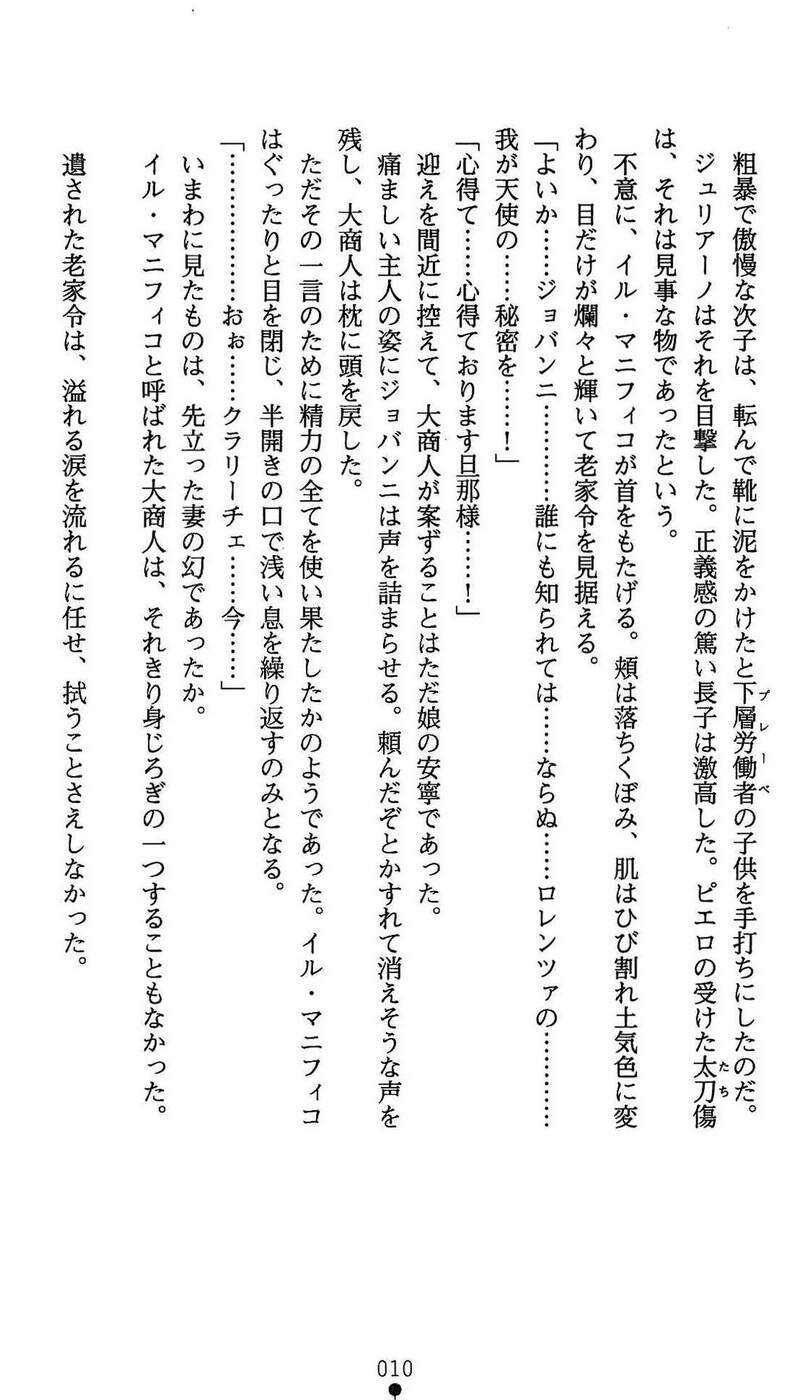 粗暴で傲慢な次子は、転んで靴に泥をかけたと下層労働者の子供を手打ちにしたのだ。
プレーベ
ジュリアーノはそれを目撃した。正義感の篤い長子は激高した。ピエロの受けた太刀傷
たち
は、それは見事な物であったという。
不意に、イル・マニフィコが首をもたげる。頬は落ちくぼみ、肌はひび割れ土気色に変
わり、目だけが爛々と輝いて老家令を見据える。
「よいか……ジョバンニ…………誰にも知られては……ならぬ……ロレンツァの…………
我が天使の……秘密を……！」
「心得て……心得ております旦那様……！」
迎えを間近に控えて、大商人が案ずることはただ娘の安寧であった。
痛ましい主人の姿にジョバンニは声を詰まらせる。頼んだぞとかすれて消えそうな声を
残し、大商人は枕に頭を戻した。
ただその一言のために精力の全てを使い果たしたかのようであった。イル・マニフィコ
はぐったりと目を閉じ、半開きの口で浅い息を繰り返すのみとなる。
「………………おぉ……クラリーチェ……今……」
いまわに見たものは、先立った妻の幻であったか。
イル・マニフィコと呼ばれた大商人は、それきり身じろぎの一つすることもなかった。
遺された老家令は、溢れる涙を流れるに任せ、拭うことさえしなかった。
010